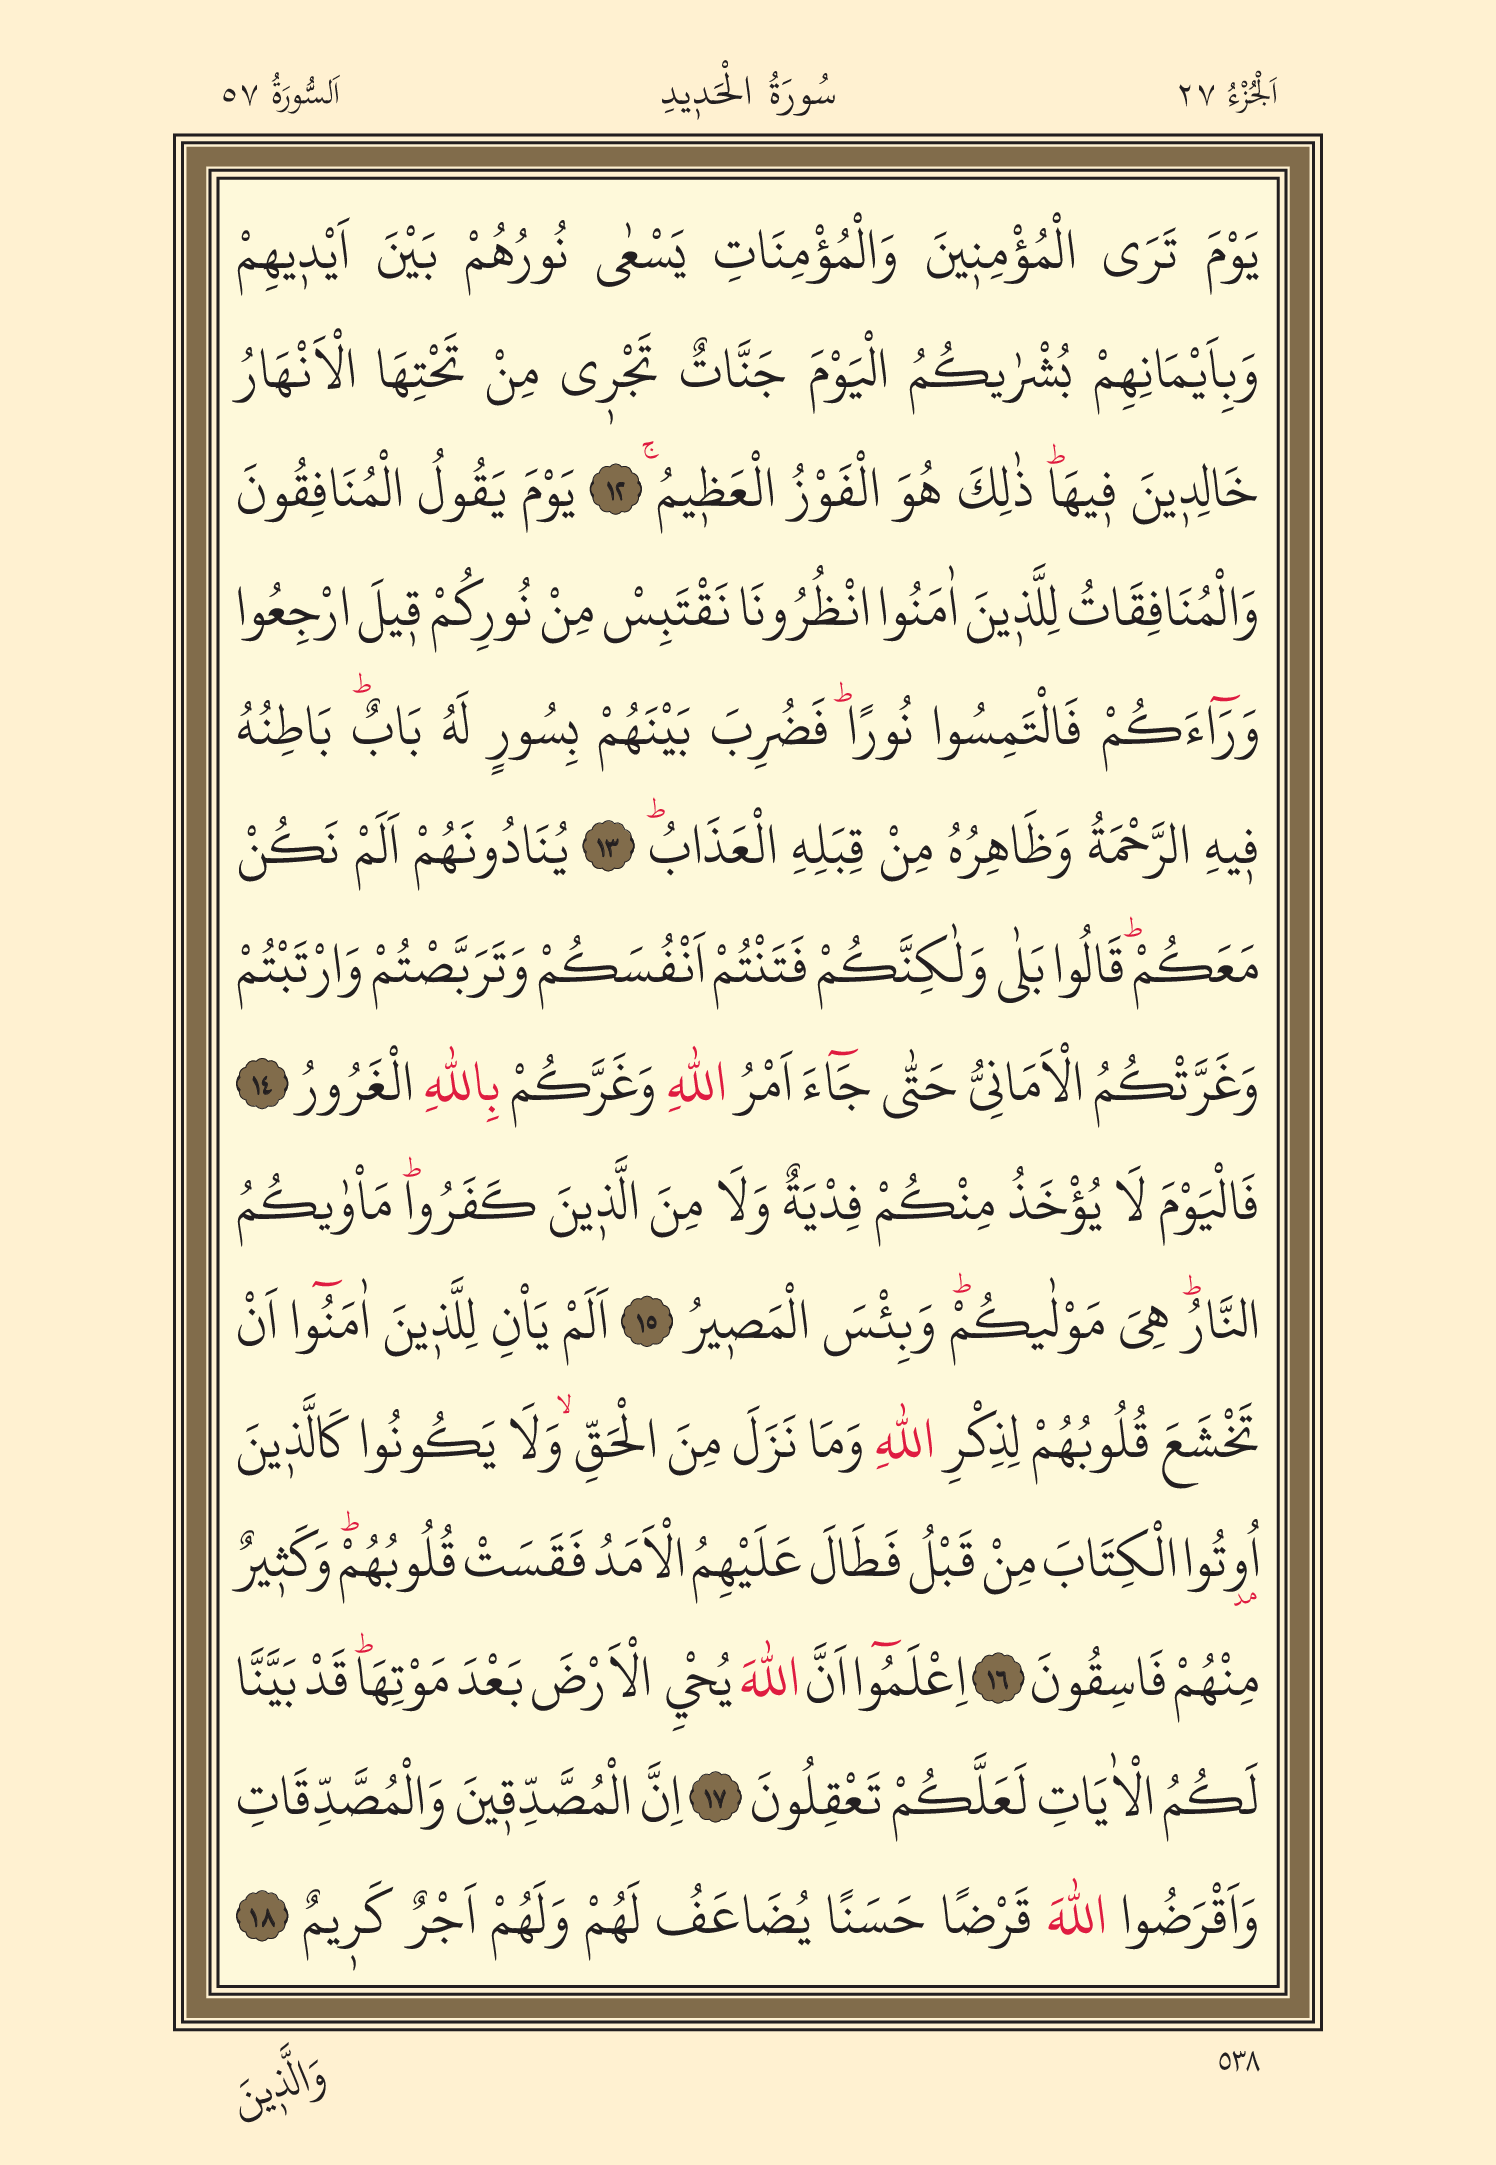 اَلْجُزْءُ ٢٧ سُورَةُ الْحَدٖيدِ اَلسُّورَةُ ٥٧
يَوْمَ تَرَى الْمُؤْمِنٖينَ وَالْمُؤْمِنَاتِ يَسْعٰى نُورُهُمْ بَيْنَ اَيْدٖيهِمْ
وَبِاَيْمَانِهِمْ بُشْرٰيكُمُ الْيَوْمَ جَنَّاتٌ تَجْرٖى مِنْ تَحْتِهَا الْاَنْهَارُ
خَالِدٖينَ فٖيهَاؕ ذٰلِكَ هُوَ الْفَوْزُ الْعَظٖيمُۚ ١٢ يَوْمَ يَقُولُ الْمُنَافِقُونَ
وَالْمُنَافِقَاتُ لِلَّذٖينَ اٰمَنُوا انْظُرُونَا نَقْتَبِسْ مِنْ نُورِكُمْ قٖيلَ ارْجِعُوا
وَرَٓاءَكُمْ فَالْتَمِسُوا نُورًاؕ فَضُرِبَ بَيْنَهُمْ بِسُورٍ لَهُ بَابٌؕ بَاطِنُهُ
فٖيهِ الرَّحْمَةُ وَظَاهِرُهُ مِنْ قِبَلِهِ الْعَذَابُؕ ١٣ يُنَادُونَهُمْ اَلَمْ نَكُنْ
مَعَكُمْؕ قَالُوا بَلٰى وَلٰكِنَّكُمْ فَتَنْتُمْ اَنْفُسَكُمْ وَتَرَبَّصْتُمْ وَارْتَبْتُمْ
وَغَرَّتْكُمُ الْاَمَانِىُّ حَتّٰى جَٓاءَ اَمْرُ اللّٰهِ وَغَرَّكُمْ بِاللّٰهِ الْغَرُورُ ١٤
فَالْيَوْمَ لَا يُؤْخَذُ مِنْكُمْ فِدْيَةٌ وَلَا مِنَ الَّذٖينَ كَفَرُواؕ مَاْوٰيكُمُ
النَّارُؕ هِىَ مَوْلٰيكُمْؕ وَبِئْسَ الْمَصٖيرُ ١٥ اَلَمْ يَاْنِ لِلَّذٖينَ اٰمَنُٓوا اَنْ
تَخْشَعَ قُلُوبُهُمْ لِذِكْرِ اللّٰهِ وَمَا نَزَلَ مِنَ الْحَقِّۙ وَلَا يَكُونُوا كَالَّذٖينَ
اُو۫تُوا الْكِتَابَ مِنْ قَبْلُ فَطَالَ عَلَيْهِمُ الْاَمَدُ فَقَسَتْ قُلُوبُهُمْؕ وَكَثٖيرٌ
مِنْهُمْ فَاسِقُونَ ١٦ اِعْلَمُٓوا اَنَّ اللّٰهَ يُحْيِ الْاَرْضَ بَعْدَ مَوْتِهَاؕ قَدْ بَيَّنَّا
لَكُمُ الْاٰيَاتِ لَعَلَّكُمْ تَعْقِلُونَ ١٧ اِنَّ الْمُصَّدِّقٖينَ وَالْمُصَّدِّقَاتِ
وَاَقْرَضُوا اللّٰهَ قَرْضًا حَسَنًا يُضَاعَفُ لَهُمْ وَلَهُمْ اَجْرٌ كَرٖيمٌ ١٨
٥٣٨ وَالَّذٖينَ